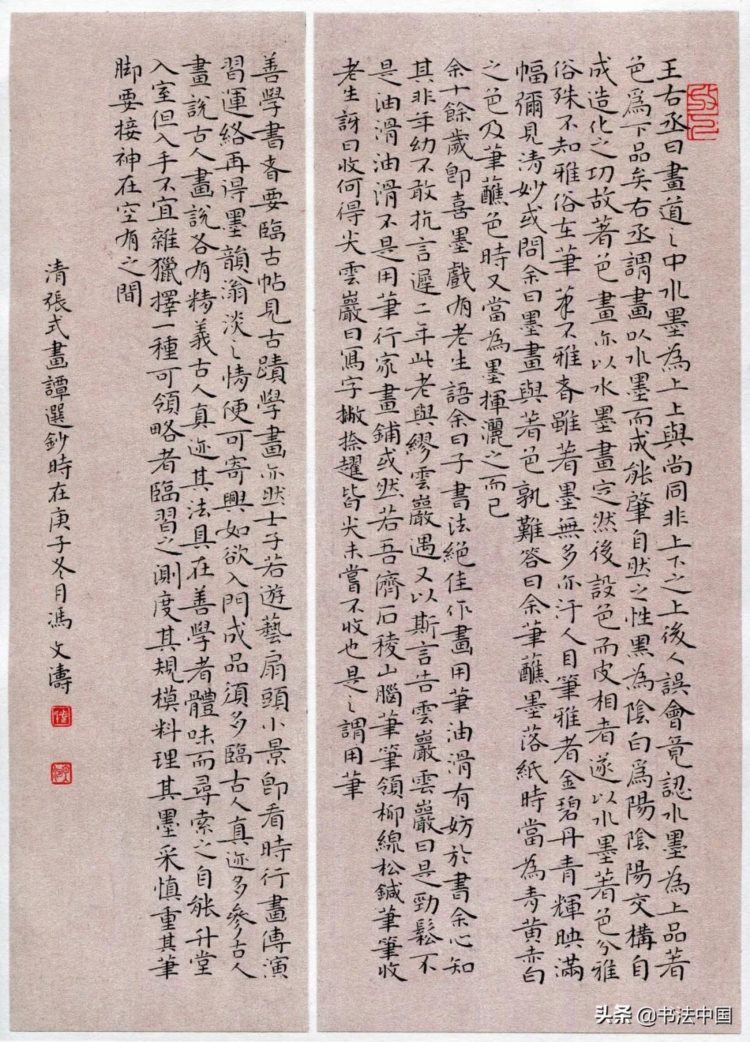 王右丞曰畫道之中水墨為上上與尚同非上下之上後人誤會竟認水墨為上品著
色爲下品矣右丞謂畫以水墨而成能肇自然之性黑為陰白爲陽陰陽交構自
成造化之功故著色畫亦以水墨畫定然後設色而皮相者遂以水墨著色分雅
俗殊不知雅俗在筆筆不雅者雖著墨無多亦汙人目筆雅者金碧丹青輝映滿
幅彌見清妙或問余曰墨畫與著色孰難答曰余筆蘸墨落紙時當為青黃赤白
之色及筆蘸色時又當為墨揮灑之而已
余十餘歲卽喜墨戲有老生語余曰子書法絶佳作畫用筆油滑有妨於書余心知
其非年幼不敢抗言遲二年此老與繆雲巖遇又以斯言告雲巖雲巖曰是勁鬆不
是油滑油滑不是用筆行家畫鋪或然若吾儕石稜山腦筆筆領柳線松鍼筆筆收
老生訝曰收何得尖雲巖曰寫字撇捺趯皆尖未嘗不收也是之謂用筆
善學書者要臨古帖見古蹟學畫亦然士子若遊藝扇頭小景卽看時行畫傳演
習運絡再得墨韻滃淡之情便可寄興如欲入門成品須多臨古人真迹多參古人
畫說古人畫說各有精義古人真迹其法具在善學者體味而尋索之自能升堂
入室但入手不宜雜獵擇一種可領略者臨習之測度其規模料理其墨采慎重其筆
脚要接神在空有之間
清張式畫譚選鈔時在庚子冬月馮文濤
头条 @书法中国